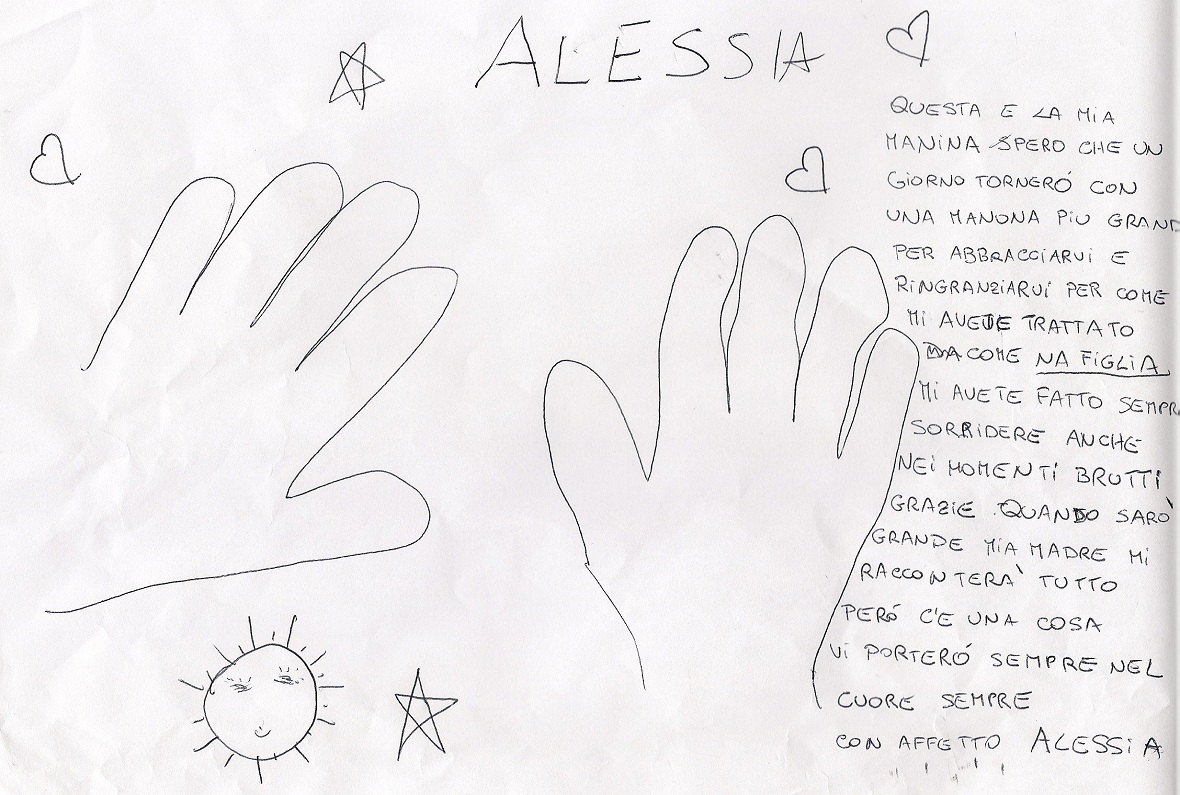 ALESSIA
QUESTA E LA MIA
MANINA SPERO CHE UN
GIORNO TORNERÓ CON
UNA MANONA PIU GRAND
PER ABBRACCIARVI E
RINGRANZIARVI PER COME
MI AVETE TRATTATO
DACOME NA FIGLIA
MI AVETE FATTO SEMPR
SORRIDERE ANCHE
NEI MOMENTI BRUTTI
GRAZIE QUANDO SARÒ
GRANDE MIA MADRE MI
RACCONTERA' TUTTO
PERÓ C'E UNA COSA
VI PORTERÓ SEMPRE NEL
CUORE SEMPRE
CON AFFETTO ALESSIA